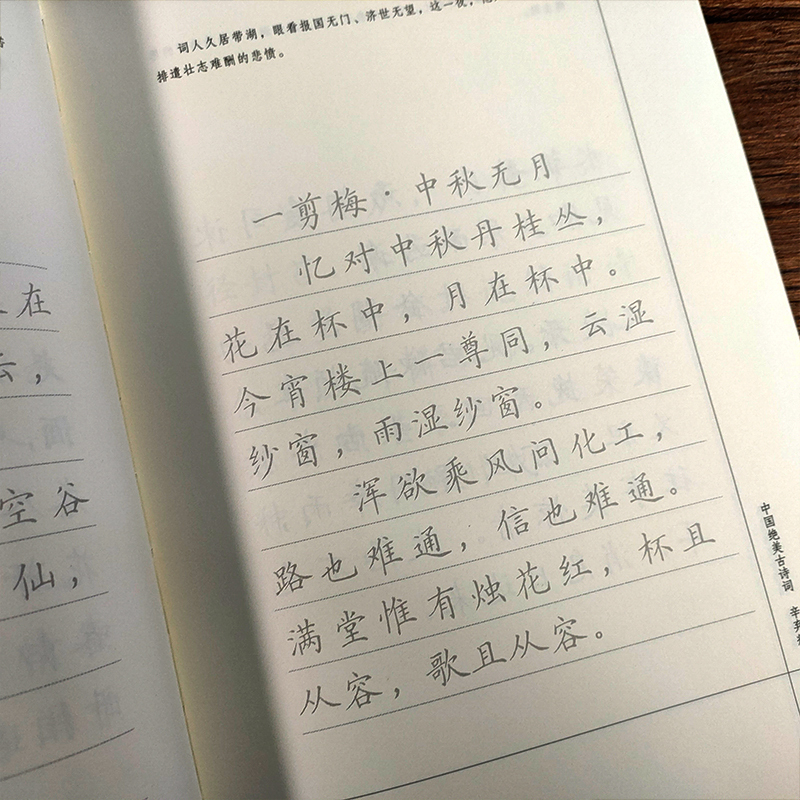 词人久居带湖，眼看报国无门、济世无望，这一夜，
排遣壮志难酬的悲愤。
一剪梅·中秋无月
忆对中秋丹桂丛，
花在杯中，月在杯中。
今宵楼上一尊同，云湿
纱窗，雨湿纱窗。
浑欲乘风问化工，
路也难通，信也难通。
满堂惟有烛花红，杯且
从容，歌且从容。
在
云，
空谷
仙，
中国绝美古诗词